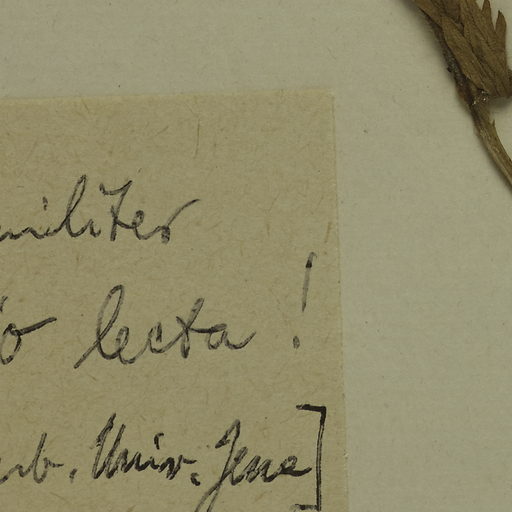 militer
o lecta!
rb. Univ. Jena]